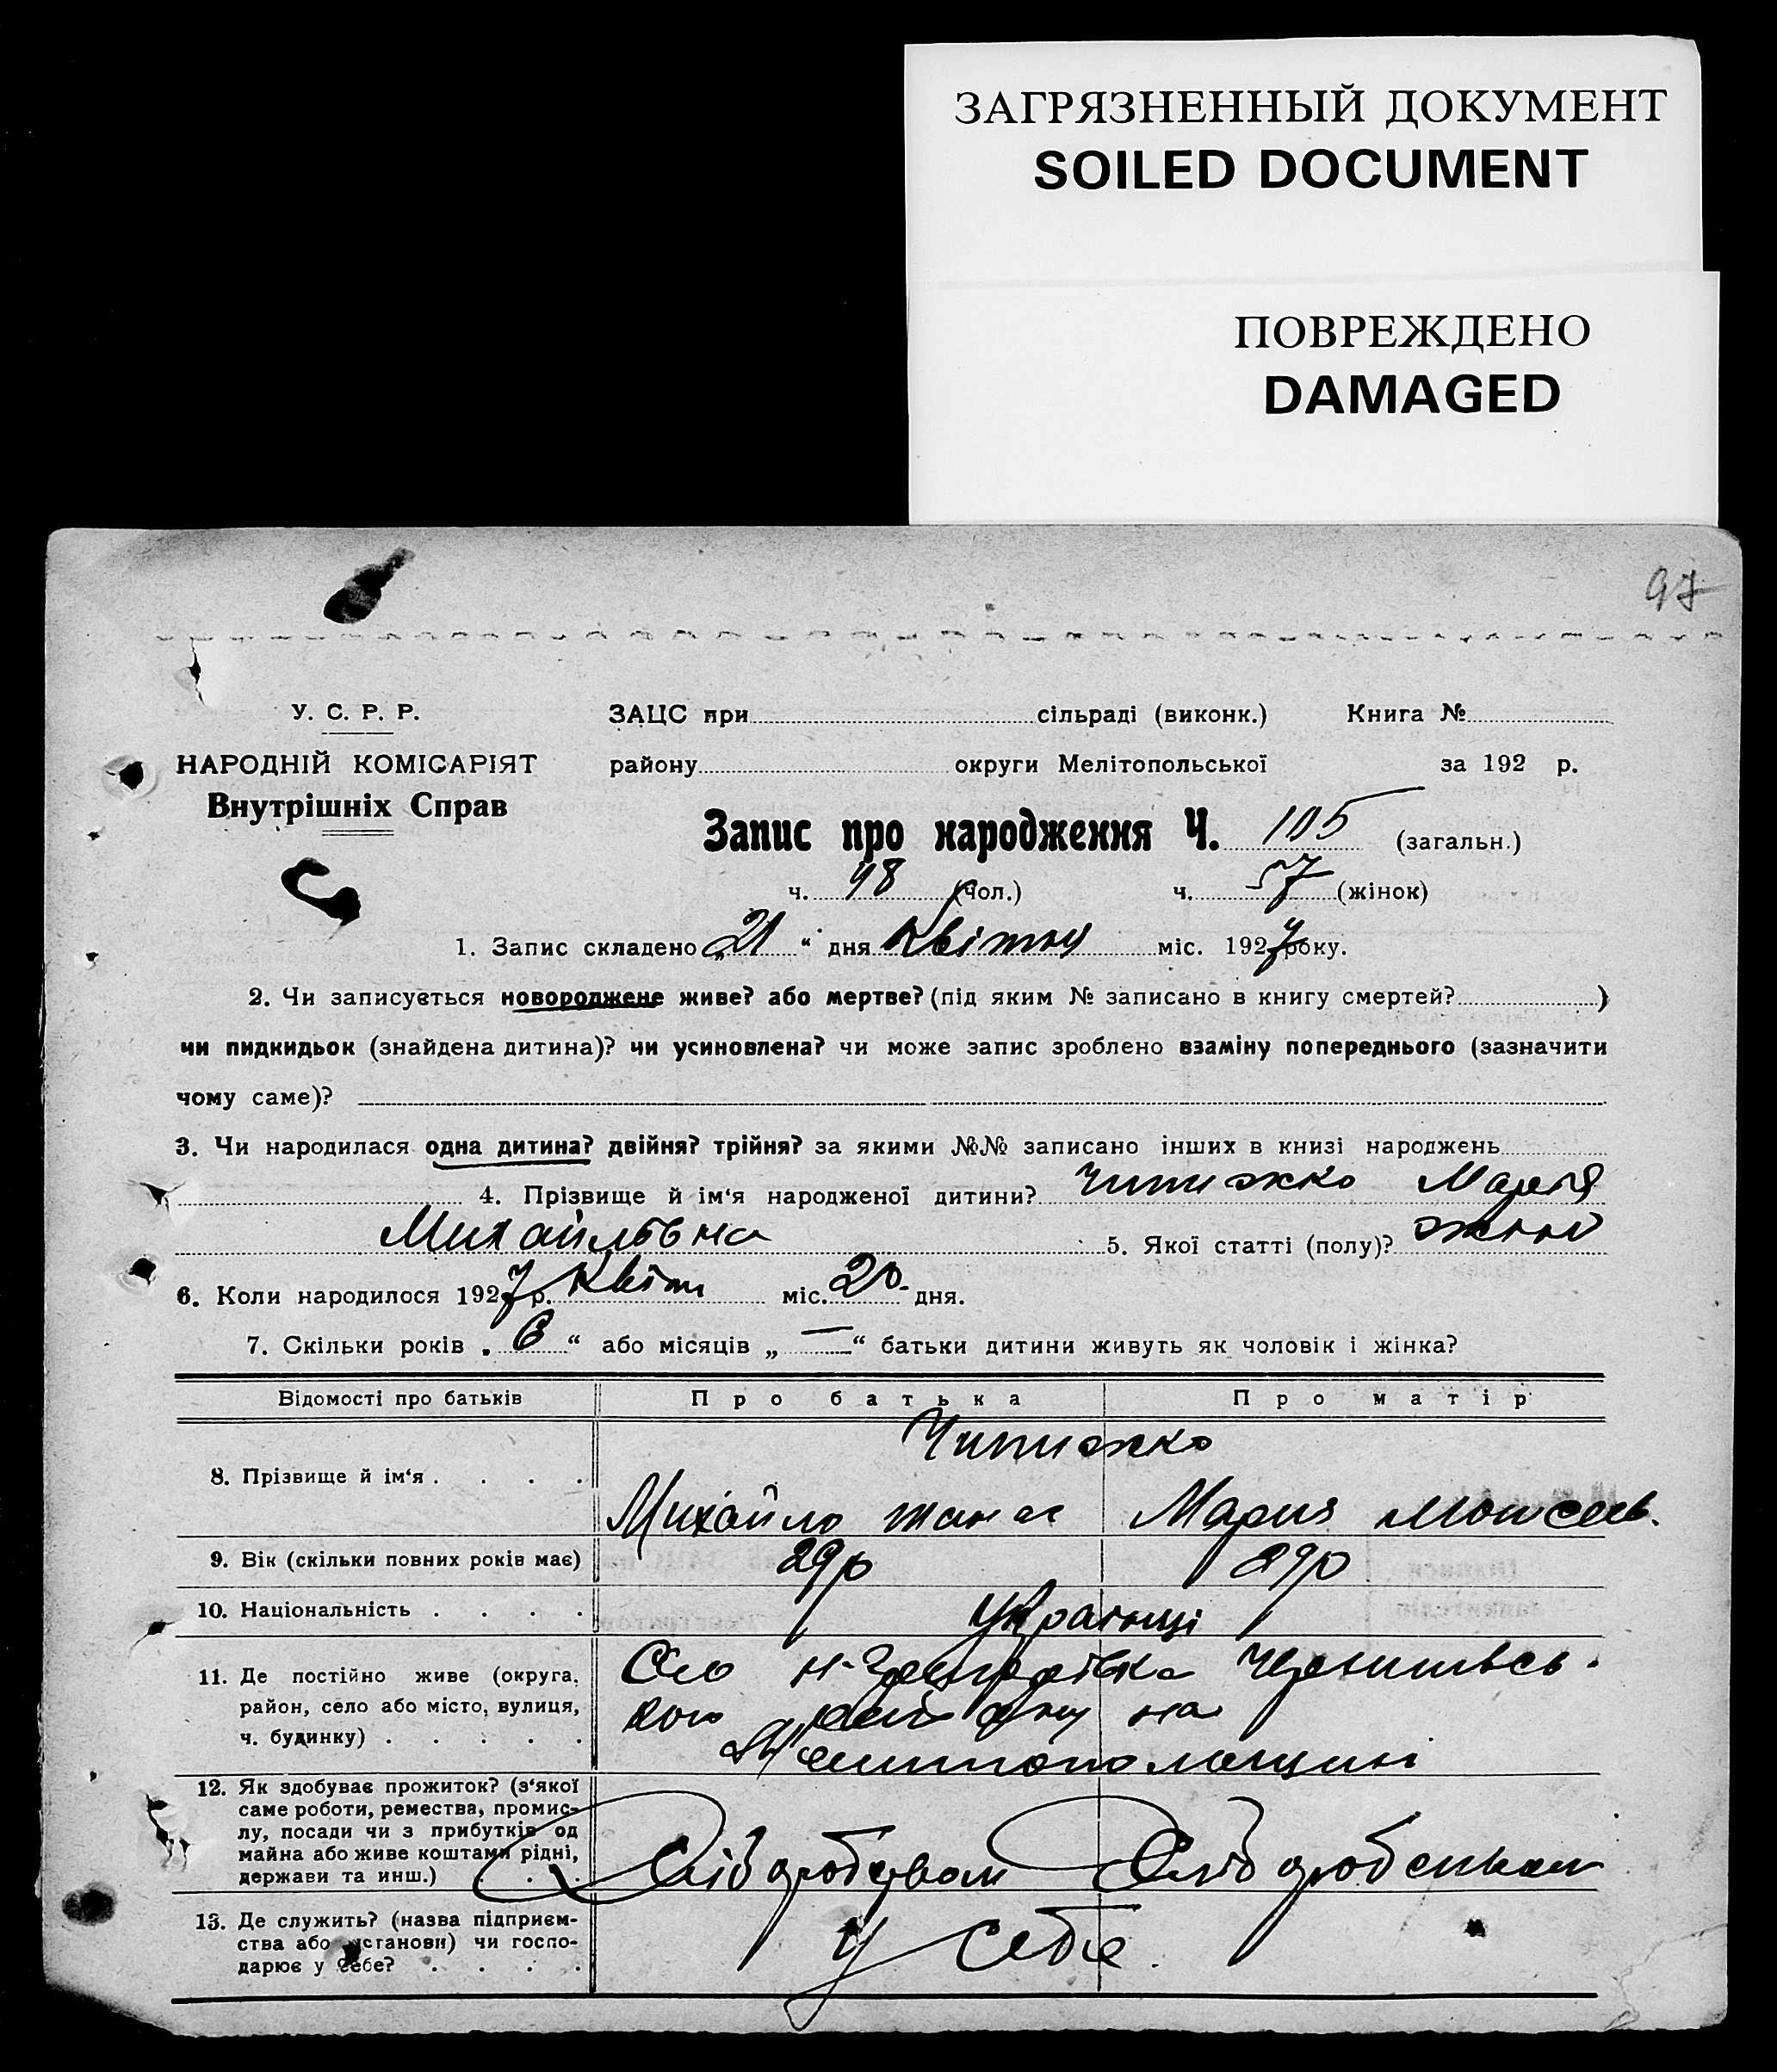 ЗАГРЯЗНЕННЫЙ ДОКУМЕНТ
SOILED DOCUMENT
ПОВРЕЖДЕНО
DAMAGED
97
У. С. Р. Р.
НАРОДНІЙ КОМІСАРІЯТ
Внутрішніх Справ
ЗАЦС при сільраді (виконк.) Книга №
району округи Мелітопольської за 192 р.
Запис про народження Ч. 105 (загальн.)
ч. 48 (чол.) ч. 57 (жінок)
1. Запис складено „21“ дня Квітня міс. 1927 року.
2. Чи записується новороджене живе? або мертве? (під яким № записано в книгу смертей? )
чи пидкидьок (знайдена дитина)? чи усиновлена? чи може запис зроблено взаміну попереднього (зазначити
чому саме)?
3. Чи народилася одна дитина? двійня? трійня? за якими №№ записано інших в книзі народжень
4. Прізвище й ім‘я народженої дитини? Чипижко Марія
Михайлівна 5. Якої статті (полу)? жіно
6. Коли народилося 1927 р. Квіт міс. 20 дня.
7. Скільки років „6“ або місяців „—“ батьки дитини живуть як чоловік і жінка?
Відомості про батьків Про батька Про матір
Чипижко
8. Прізвище й ім‘я . . . .
Михайло Мария Моисеев.
9. Вік (скільки повних років має) 29р 29р
10. Національність . . . . Українці
11. Де постійно живе (округа, район, село або місто, вулиця, ч. будинку) . . . . .
Село Чернигівсь-
кого району на
Мелитопольщині
12. Як здобуває прожиток? (з‘якої саме роботи, ремества, промислу, посади чи з прибутків од майна або живе коштами рідні, держави та инш.) . . .
Хліборобством Хліборобством
13. Де служить? (назва підприємства або установи) чи господарює у себе? . . . .
У себе.